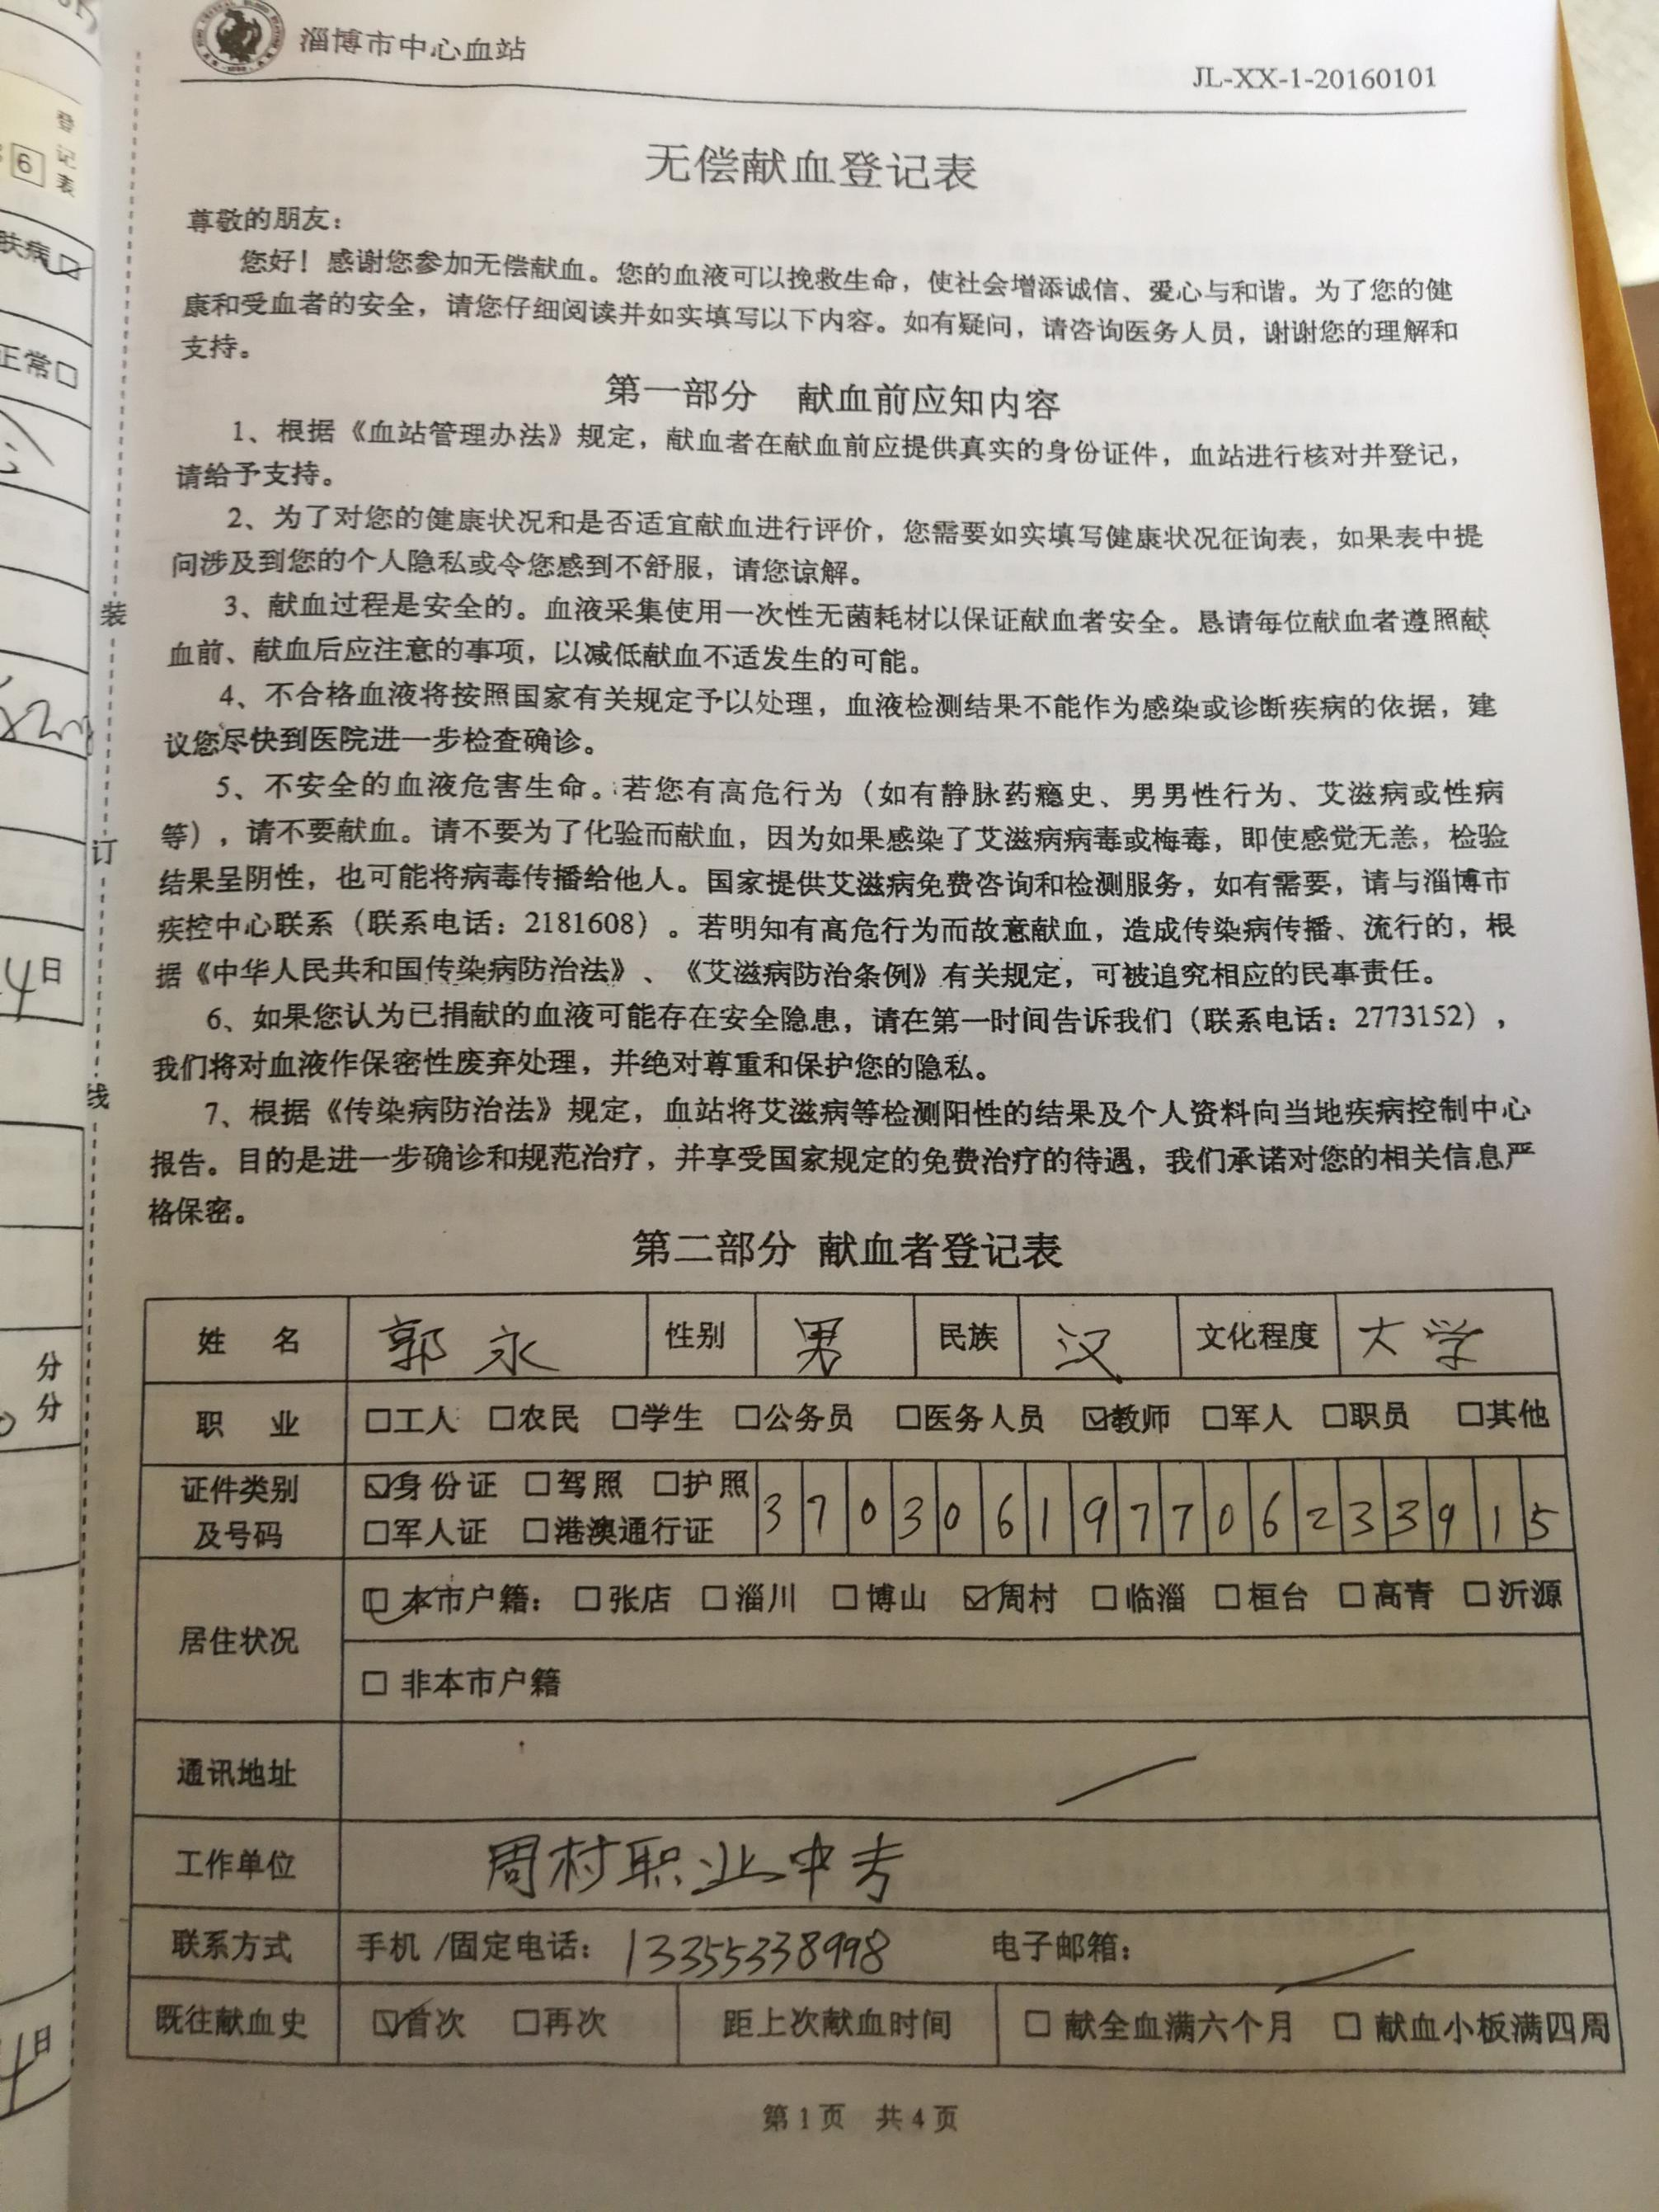 淄博市中心血站
JL-XX-1-20160101
无偿献血登记表
尊敬的朋友：
您好！感谢您参加无偿献血。您的血液可以挽救生命，使社会增添诚信、爱心与和谐。为了您的健
康和受血者的安全，请您仔细阅读并如实填写以下内容。如有疑问，请咨询医务人员，谢谢您的理解和
支持。
第一部分 献血前应知内容
1、根据《血站管理办法》规定，献血者在献血前应提供真实的身份证件，血站进行核对并登记，
请给予支持。
2、为了对您的健康状况和是否适宜献血进行评价，您需要如实填写健康状况征询表，如果表中提
问涉及到您的个人隐私或令您感到不舒服，请您谅解。
3、献血过程是安全的。血液采集使用一次性无菌耗材以保证献血者安全。恳请每位献血者遵照献
血前、献血后应注意的事项，以减低献血不适发生的可能。
4、不合格血液将按照国家有关规定予以处理，血液检测结果不能作为感染或诊断疾病的依据，建
议您尽快到医院进一步检查确诊。
5、不安全的血液危害生命。若您有高危行为（如有静脉药瘾史、男男性行为、艾滋病或性病
等），请不要献血。请不要为了化验而献血，因为如果感染了艾滋病病毒或梅毒，即使感觉无恙，检验
结果呈阴性，也可能将病毒传播给他人。国家提供艾滋病免费咨询和检测服务，如有需要，请与淄博市
疾控中心联系（联系电话：2181608）。若明知有高危行为而故意献血，造成传染病传播、流行的，根
据《中华人民共和国传染病防治法》、《艾滋病防治条例》有关规定，可被追究相应的民事责任。
6、如果您认为已捐献的血液可能存在安全隐患，请在第一时间告诉我们（联系电话：2773152），
我们将对血液作保密性废弃处理，并绝对尊重和保护您的隐私。
7、根据《传染病防治法》规定，血站将艾滋病等检测阳性的结果及个人资料向当地疾病控制中心
报告。目的是进一步确诊和规范治疗，并享受国家规定的免费治疗的待遇，我们承诺对您的相关信息严
格保密。
第二部分 献血者登记表
姓 名 郭永 性别 男 民族 汉 文化程度 大学
职 业 □工人 □农民 □学生 □公务员 □医务人员 ☑教师 □军人 □职员 □其他
证件类别 ☑身份证 □驾照 □护照 370306197706233915
及号码 □军人证 □港澳通行证
居住状况 ☑本市户籍：□张店 □淄川 □博山 ☑周村 □临淄 □桓台 □高青 □沂源
□ 非本市户籍
通讯地址
工作单位 周村职业中专
联系方式 手机/固定电话：13355338998 电子邮箱：
既往献血史 ☑首次 □再次 距上次献血时间 □ 献全血满六个月 □ 献血小板满四周
第1页 共4页
装
订
线
登
记
表
6
肤病☑
正常□
4日
分
分
4日